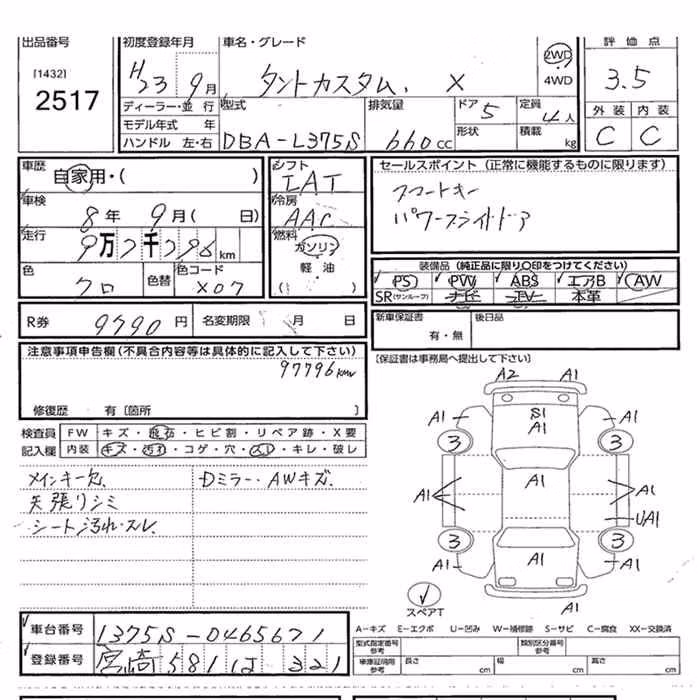 出品番号 初度登録年月 車名・グレード 評価点
[1432] 2517 H23 9月 タントカスタム, X 2WD 4WD 3.5
ディーラー・並行 型式 排気量 ドア 5 定員 4人 外装 内装
モデル年式 年 形状 積載 kg C C
ハンドル 左・右 DBA-L375S 660cc
車歴 自家用・( ) シフト IAT セールスポイント (正常に機能するものに限ります)
車検 8年 9月( 日) 冷房 AAC スマートキー
走行 9万7千796km 燃料 ガソリン・軽油 ( ) パワースライドドア
色 クロ 色替 色コード X07 装備品 (純正品に限り○印をつけてください)
PS PW ABS エアB AW
SR(サンルーフ) ナビ TV 本革
R券 9790円 名変期限 月 日 新車保証書 有・無 後日品
注意事項申告欄(不具合内容等は具体的に記入して下さい) [保証書は事務局へ提出して下さい]
97796km
修復歴 有 [箇所 ]
検査員 FW キズ・飛石・ヒビ割・リペア跡・X要
記入欄 内装 キズ・汚れ・コゲ・穴・スレ・キレ・破レ
メインキー欠, Dミラー・AWキズ.
天張りシミ
シート汚れ・スレ
A2 A1
A1 S1 A1 A1
3 3
A1 A1 A1
UA1
3 3
A1 A1 A1
スペアT A1
A-キズ E-エクボ U-凹み W-補修跡 S-サビ C-腐食 XX-交換済
車台番号 L375S-0465671 型式指定番号 参考 類別区分番号 参考
登録番号 宮崎 581 は 321 車庫証明用 参考 長さ cm 幅 cm 高さ cm